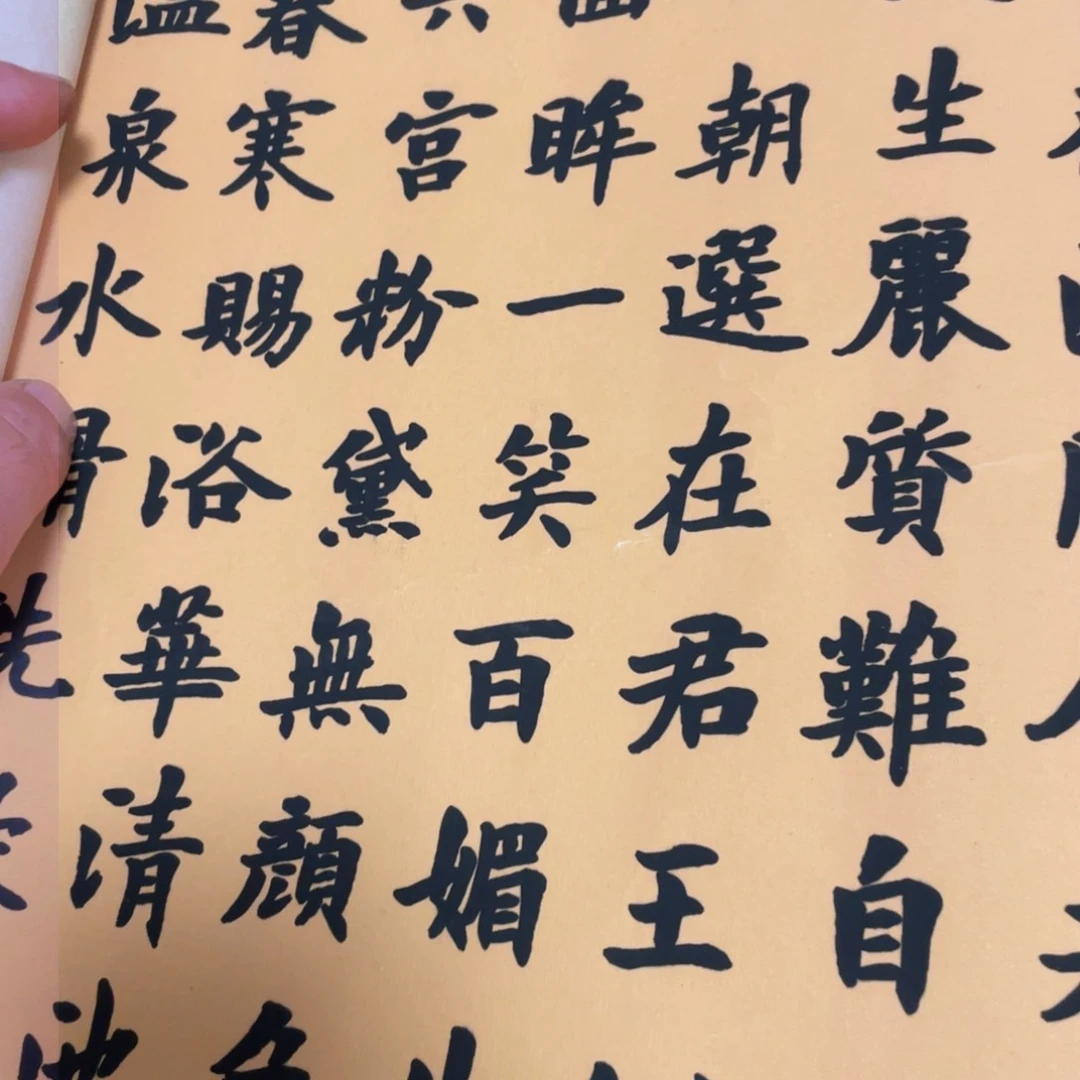 生麗質難自
朝選在君王
眸一笑百媚
六宮粉黛無顏色
春寒賜浴華清池
溫泉水滑洗